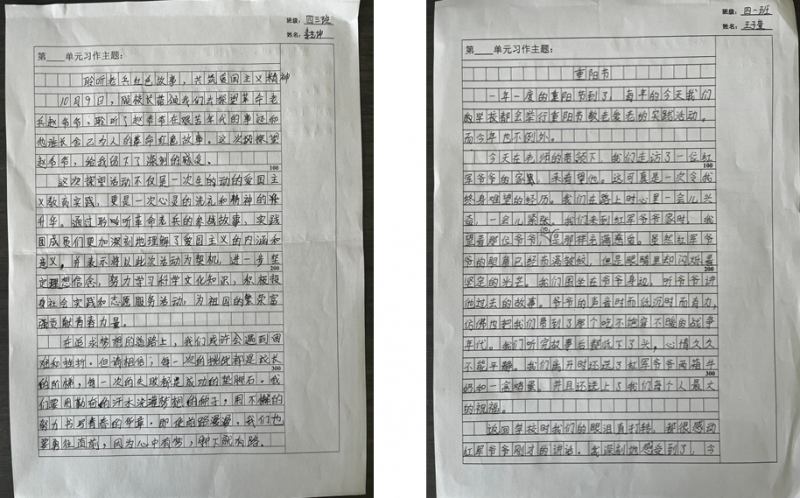 班级：四三班
姓名：
第____单元习作主题：
聆听老兵红色故事，共筑爱国主义精神
10月9日，学校长带领我们去探望革命老
兵赵爷爷，聆听了赵爷爷在艰苦年代的事迹和
他舍己为人的革命红色故事。这次的探望
赵爷爷，给我留下了深刻的感受。
100
这次探望活动不仅是一次生动的爱国主
义教育实践，更是一次心灵的洗礼和精神的升
华。通过聆听革命老兵的英雄故事，实践
团成员们更加深刻地理解了爱国主义的内涵和
意义，并表示将以此次活动为契机，进一步坚
200
定理想信念，努力学习科学文化知识，积极投
身社会实践和志愿服务活动，为祖国的繁荣富
强贡献青春力量。
在追求梦想的道路上，我们或许会遇到困
难和挫折。但请相信，每一次的挫败都是成长
300
的阶梯，每一次的失败都是成功的垫脚石。我
们要用勤奋的汗水浇灌梦想的种子，用不懈的
努力书写青春的华章。即使前路漫漫，我们也
要勇往直前，因为心中有梦，脚下就有路。
班级：四一班
姓名：
第____单元习作主题：
重阳节
一年一度的重阳节到了，每年的今天我们
的学校都会举行重阳节敬老爱老的实践活动。
而今年也不例外。
今天在老师的带领下，我们走访了一位红
100
军爷爷的家里，来看望他。这可真是一次令我
终身难忘的经历。我们在路上时心里一会儿兴
奋，一会儿紧张。我们来到红军爷爷家时，我
望着那位爷爷，是那样充满慈爱。虽然红军爷
200
爷的脸庞已经布满皱纹，但是眼睛里却闪烁着
坚定的光芒。我们围坐在爷爷身边，听爷爷讲
他过去的故事。爷爷的声音时而低沉时而有力，
仿佛内把我们带到了那个吃不饱穿不暖的战争
年代。我们听完故事后都低下了头，心情久久
不能平静。我们离开时还送了红军爷爷两箱牛
300
奶和一箱鸡蛋，并且还送上了我们每个人最大
的祝福。
返回学校时我们的眼泪直打转，都很感动
红军爷爷刚才的讲话。我深刻地感受到了，今